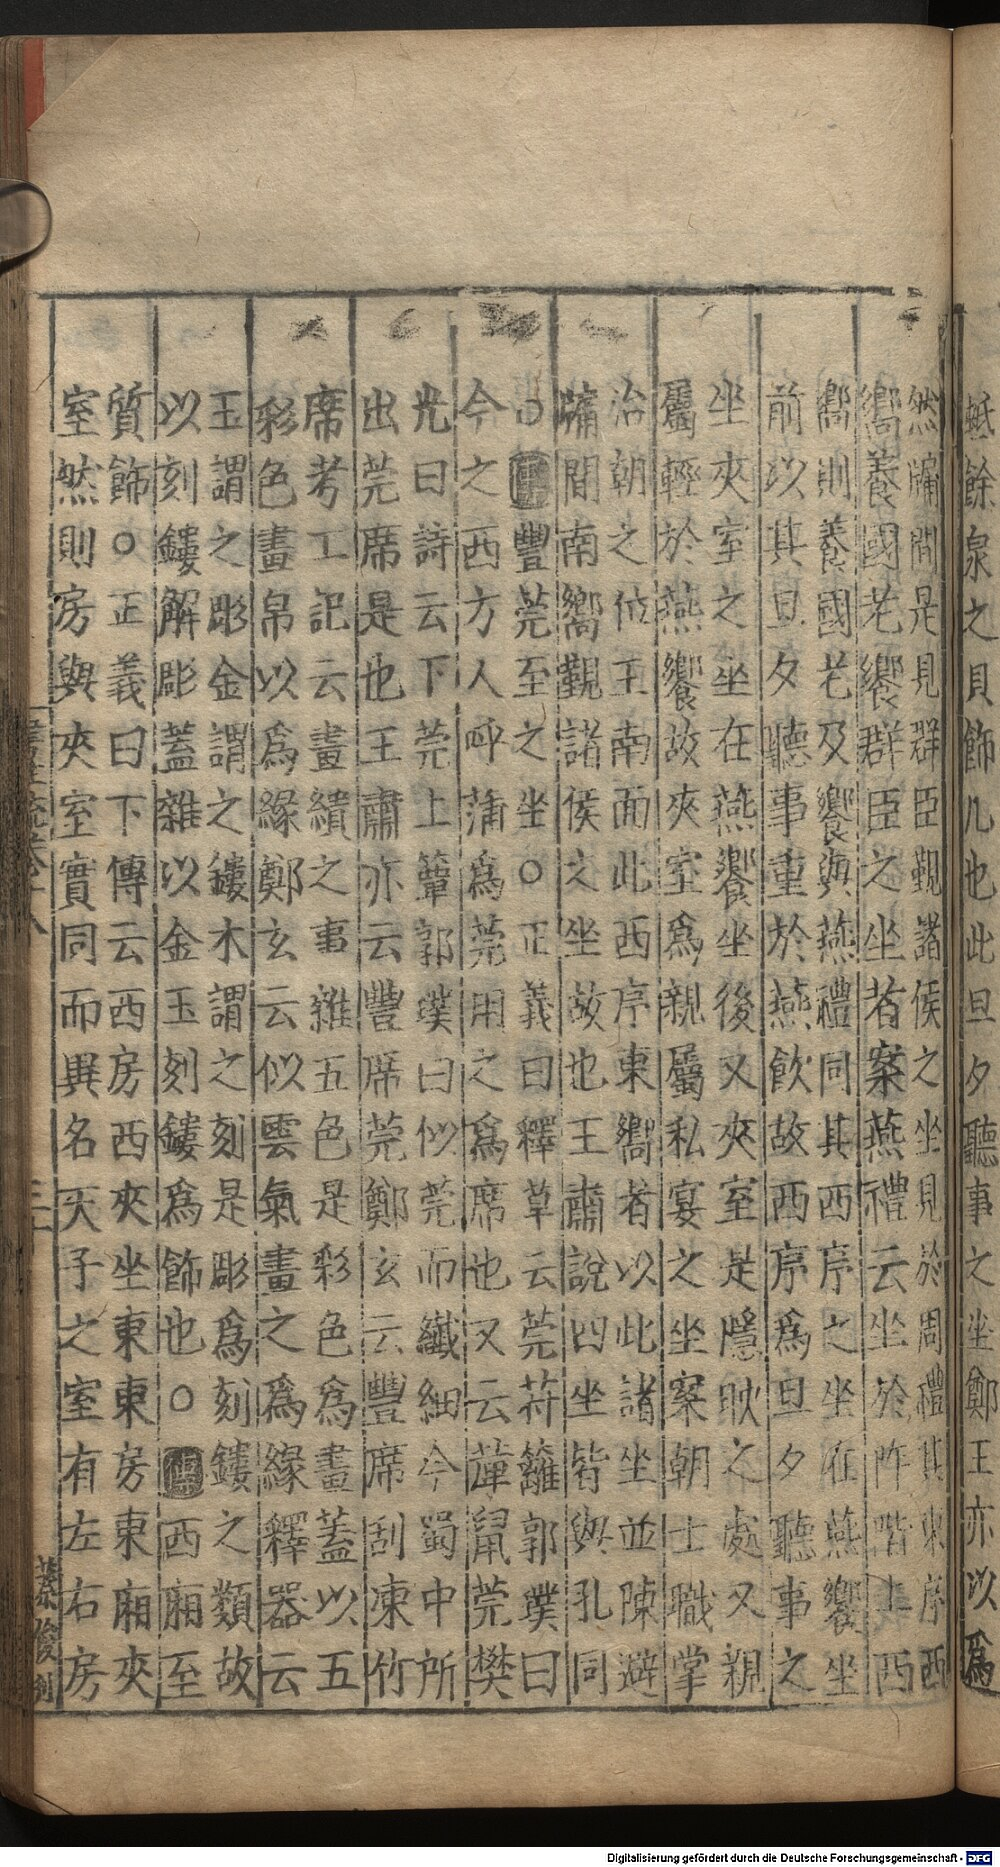 蚳餘泉之貝飾几也此旦夕聽事之坐鄭王亦以爲
然牖間是見群臣覲諸侯之坐見於周禮其東序西
嚮養國老饗群臣之坐者案燕禮云坐於阼階上西
嚮則養國老及饗與燕禮同其西序之坐在燕饗坐
前以其旦夕聽事重於燕飲故西序爲旦夕聽事之
坐夾室之坐在燕饗坐後又夾室是隱映之處又親
屬輕於燕饗故夾室爲親屬私宴之坐案朝士職掌
治朝之位王南面此西序東嚮者以此諸坐並陳避
牖間南嚮覲諸侯之坐故也王肅說四坐皆與孔同
○豐莞至之坐○正義曰釋草云莞苻籬郭璞曰
今之西方人呼蒲爲莞用之爲席也又云䕮鼠莞樊
光曰詩云下莞上簟郭璞曰似莞而纖細今蜀中所
出莞席是也王肅亦云豐席莞鄭玄云豐席刮凍竹
席考工記云畫繢之事雜五色是彩色爲畫蓋以五
彩色畫帛以爲緣鄭玄云似雲氣畫之爲緣釋器云
玉謂之彫金謂之鏤木謂之刻是彫爲刻鏤之類故
以刻鏤解彫蓋雜以金玉刻鏤爲飾也○傳西廂至
質飾○正義曰下傳云西房西夾坐東東房東廂夾
室然則房與夾室實同而異名天子之室有左右房
Digitalisierung gefördert durch die Deutsche Forschungsgemeinschaft - DFG